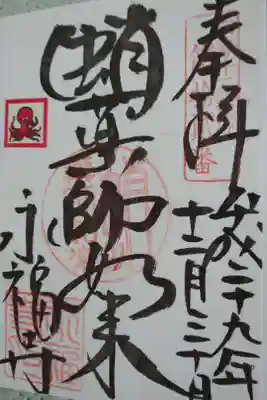 奉拝
平成二十九年
十二月三十日
蛸薬師如来
永福寺